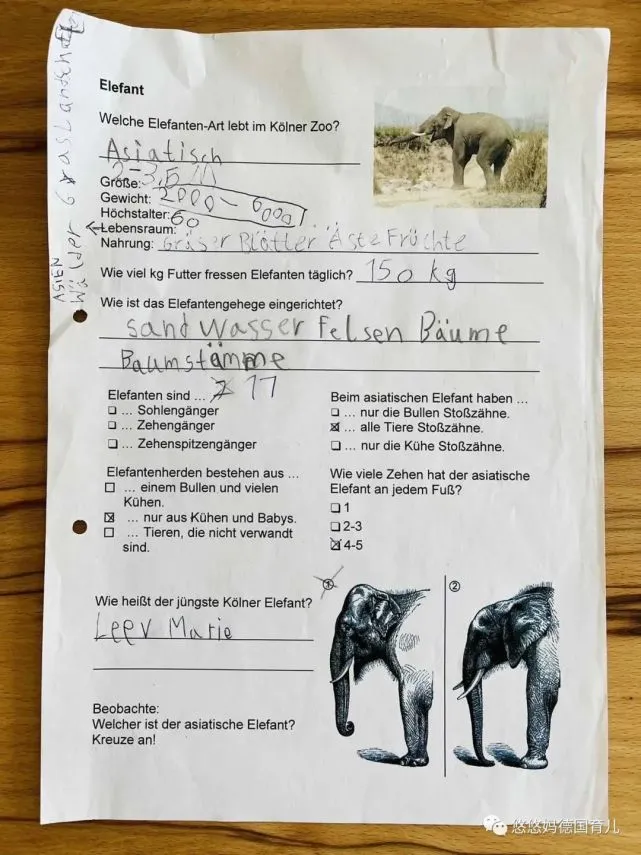 Elefant
Welche Elefanten-Art lebt im Kölner Zoo?
Asiatisch
Größe: 2-3,5 m
Gewicht: 2000 - 6000
Höchstalter: 60
←Lebensraum:
ASIEN
Wälder Graslandschaft
Nahrung: Gräser Blätter Äste Früchte
Wie viel kg Futter fressen Elefanten täglich? 150 kg
Wie ist das Elefantengehege eingerichtet?
sand wasser Felsen Bäume
Baumstämme
Elefanten sind ...
☐ ... Sohlengänger
☐ ... Zehengänger
☐ ... Zehenspitzengänger
Beim asiatischen Elefant haben ...
☐ ... nur die Bullen Stoßzähne.
☒ ... alle Tiere Stoßzähne.
☐ ... nur die Kühe Stoßzähne.
Elefantenherden bestehen aus ...
☐ ... einem Bullen und vielen
Kühen.
☒ ... nur aus Kühen und Babys.
☐ ... Tieren, die nicht verwandt
sind.
Wie viele Zehen hat der asiatische
Elefant an jedem Fuß?
☐ 1
☐ 2-3
☒ 4-5
Wie heißt der jüngste Kölner Elefant?
Leev Marie
① ②
Beobachte:
Welcher ist der asiatische Elefant?
Kreuze an!
悠悠妈德国育儿